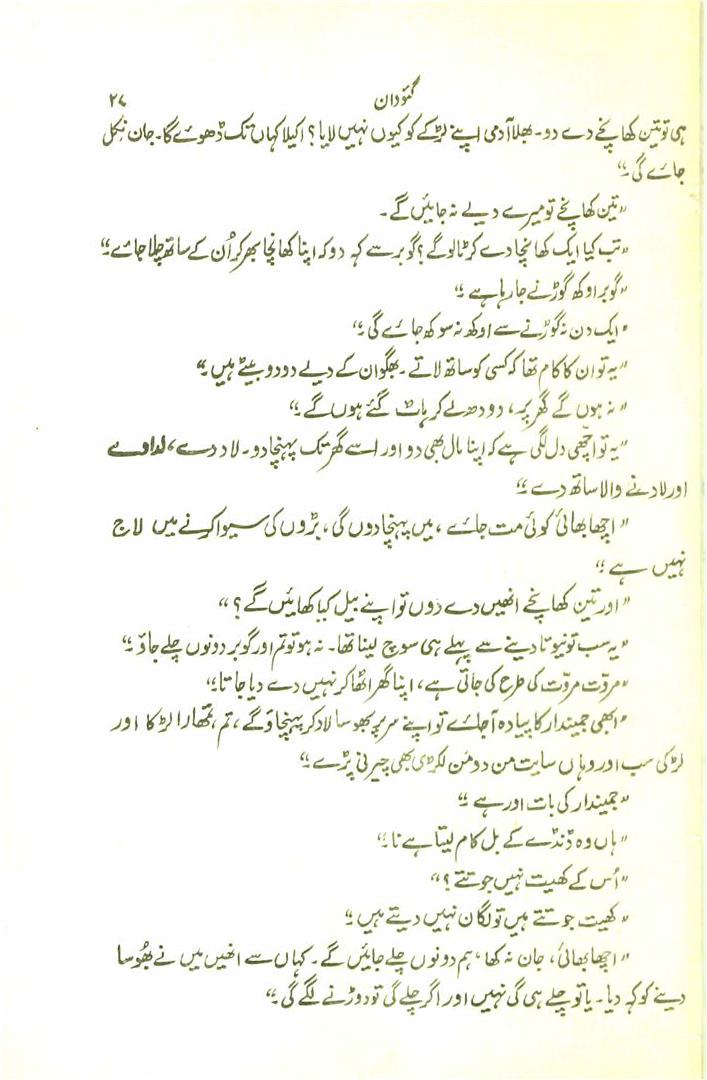 گئودان ۲۷
ہی تو تین کھانچے دے دو۔ بھلا آدمی اپنے لڑکے کو کیوں نہیں لایا؟ اکیلا کہاں تک ڈھوئے گا۔ جان نکل
جائے گی۔“
”تین کھانچے تو میرے دیے نہ جائیں گے۔
”تب کیا ایک کھانچا دے کر ٹالوگے؟ گوبر سے کہہ دو کہ اپنا کھانچا بھر کر اُن کے ساتھ چلا جائے۔“
”گوبر اوکھ گوڑنے جا رہا ہے۔“
”ایک دن نہ گوڑنے سے اوکھ نہ سوکھ جائے گی۔“
”یہ تو ان کا کام تھا کہ کسی کو ساتھ لاتے۔ بھگوان کے دیے دو دو بیٹے ہیں۔“
”نہ ہوں گے گھر پر، دودھ لے کر ہاٹ گئے ہوں گے۔“
”یہ تو اچھی دل لگی ہے کہ اپنا مال بھی دو اور اسے گھر تک پہنچا دو۔ لاد دے، لداوے
اور لادنے والا ساتھ دے۔“
”اچھا بھائی کوئی مت جائے، میں پہنچا دوں گی، بڑوں کی سیوا کرنے میں لاج
نہیں ہے۔“
”اور تین کھانچے انھیں دے دوں تو اپنے بیل کیا کھائیں گے؟“
”یہ سب تو نیوتا دینے سے پہلے ہی سوچ لینا تھا۔ نہ ہو تو تم اور گوبر دونوں چلے جاؤ۔“
”مروّت مروّت کی طرح کی جاتی ہے، اپنا گھر اٹھا کر نہیں دے دیا جاتا۔“
”ابھی جمیندار کا پیادہ آ جائے تو اپنے سر پر بھوسا لاد کر پہنچاؤ گے، تم، تمھارا لڑکا اور
لڑکی سب اور وہاں سایت من دو من لکڑی بھی چیرنی پڑے۔“
”جمیندار کی بات اور ہے۔“
”ہاں وہ ڈنڈے کے بل کام لیتا ہے نا۔“
”اُس کے کھیت نہیں جوتتے؟“
”کھیت جوتتے ہیں تو لگان نہیں دیتے ہیں۔“
”اچھا بھائی، جان نہ کھا، ہم دونوں چلے جائیں گے۔ کہاں سے انھیں میں نے بھُوسا
دینے کو کہہ دیا۔ یا تو چلے ہی گی نہیں اور اگر چلے گی تو دوڑنے لگے گی۔“